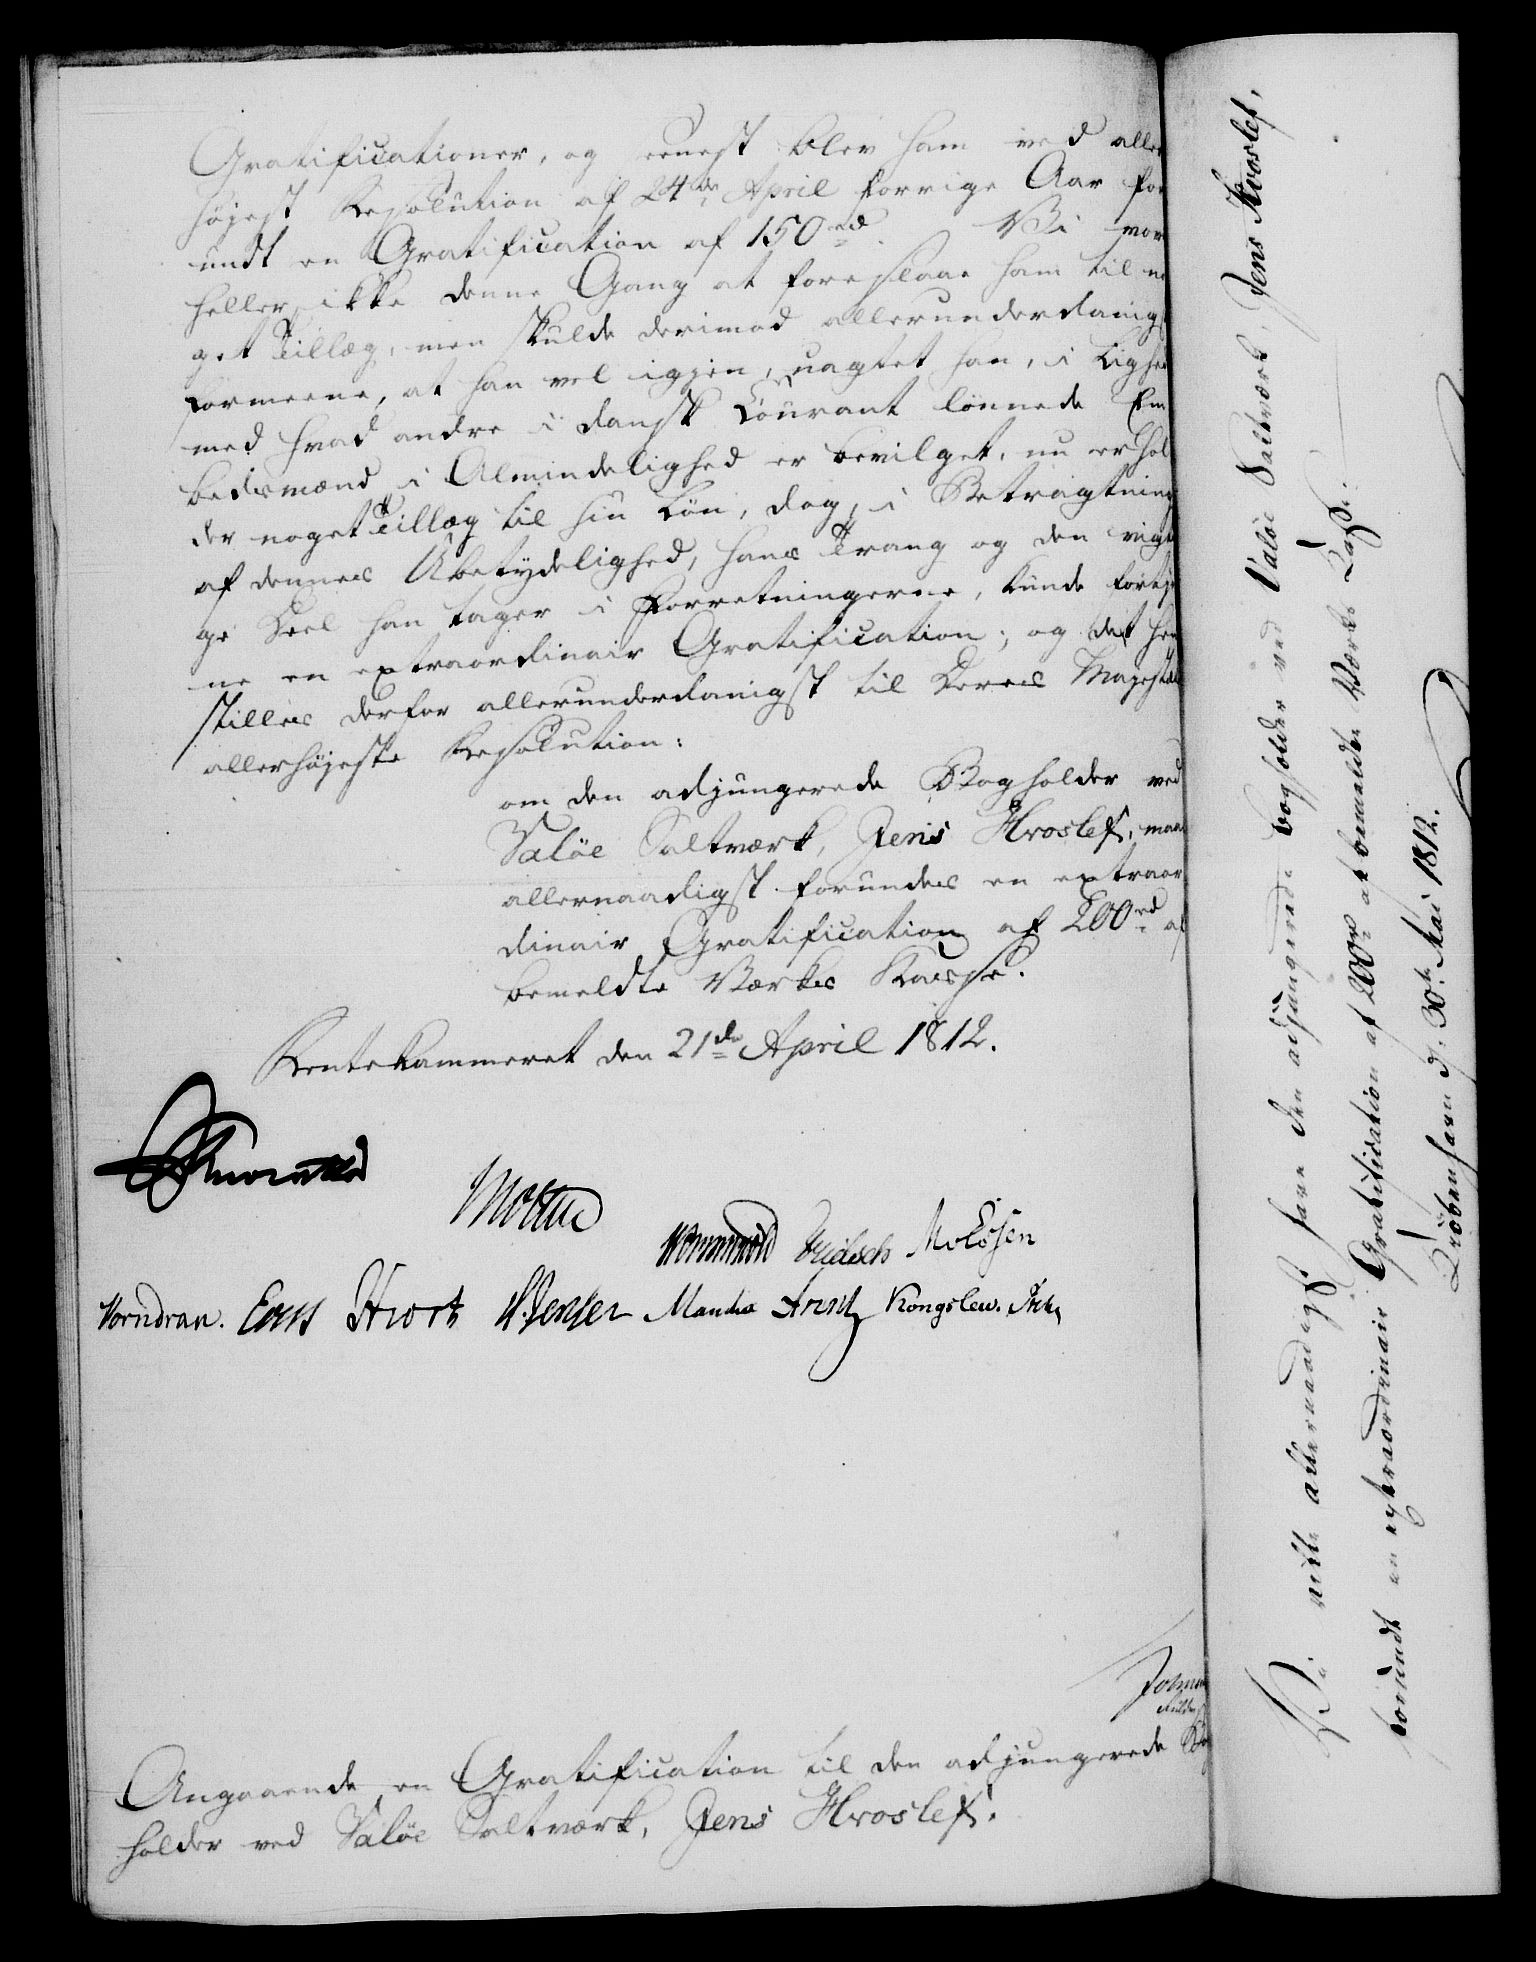 Gratificationer, og senest blev ham ved aller
højest Resolution af 24de April forrige Aar for
undt en Gratification af 150 rd. Vi vove
heller ikke denne Gang at foreslaae ham til no
get Tillæg, men skulde derimod allerunderdanigst
formeene, at han vel igjen, uagtet han, i Lighed
med hvad andre i dansk Courant lønnede Em
bedsmænd i Almindelighed er bevilget, nu erhol
der noget Tillæg til sin Løn, dog, i Betragtning
af dennes Ubetydelighed, hans Trang og den vigti
ge Deel han tager i Forretningerne, kunde fortje
ne en extraordinair Gratification; og det hen
stilles derfor allerunderdanigst til Deres Majestæts
allerhøjeste Resolution:
om den adjungerede Bogholder ved
Valøe Saltværk, Jens Hroslef, maae
allernaadigst forundes en extraor
dinair Gratification af 200 rd af
bemeldte Værkes Kasse.
Rentekammeret den 21de April 1812.
Knorr
Molthe
Wormskiold Lydisch Mølsøn
Vorndran. Hiort P. Jensen Manthe Arntz Kongslew.
Angaaende en Gratification til den adjungerede Bog
holder ved Valøe Saltværk, Jens Hroslef.
Vi ville allernaadigst have den adjungerede Bogholder ved Valöe Saltværk, Jens Hroslef,
forundt en extraordinair Gratification af 200 rd af bemeldte Værks Casse.
Kiöbenhavn d. 30te Mai 1812.